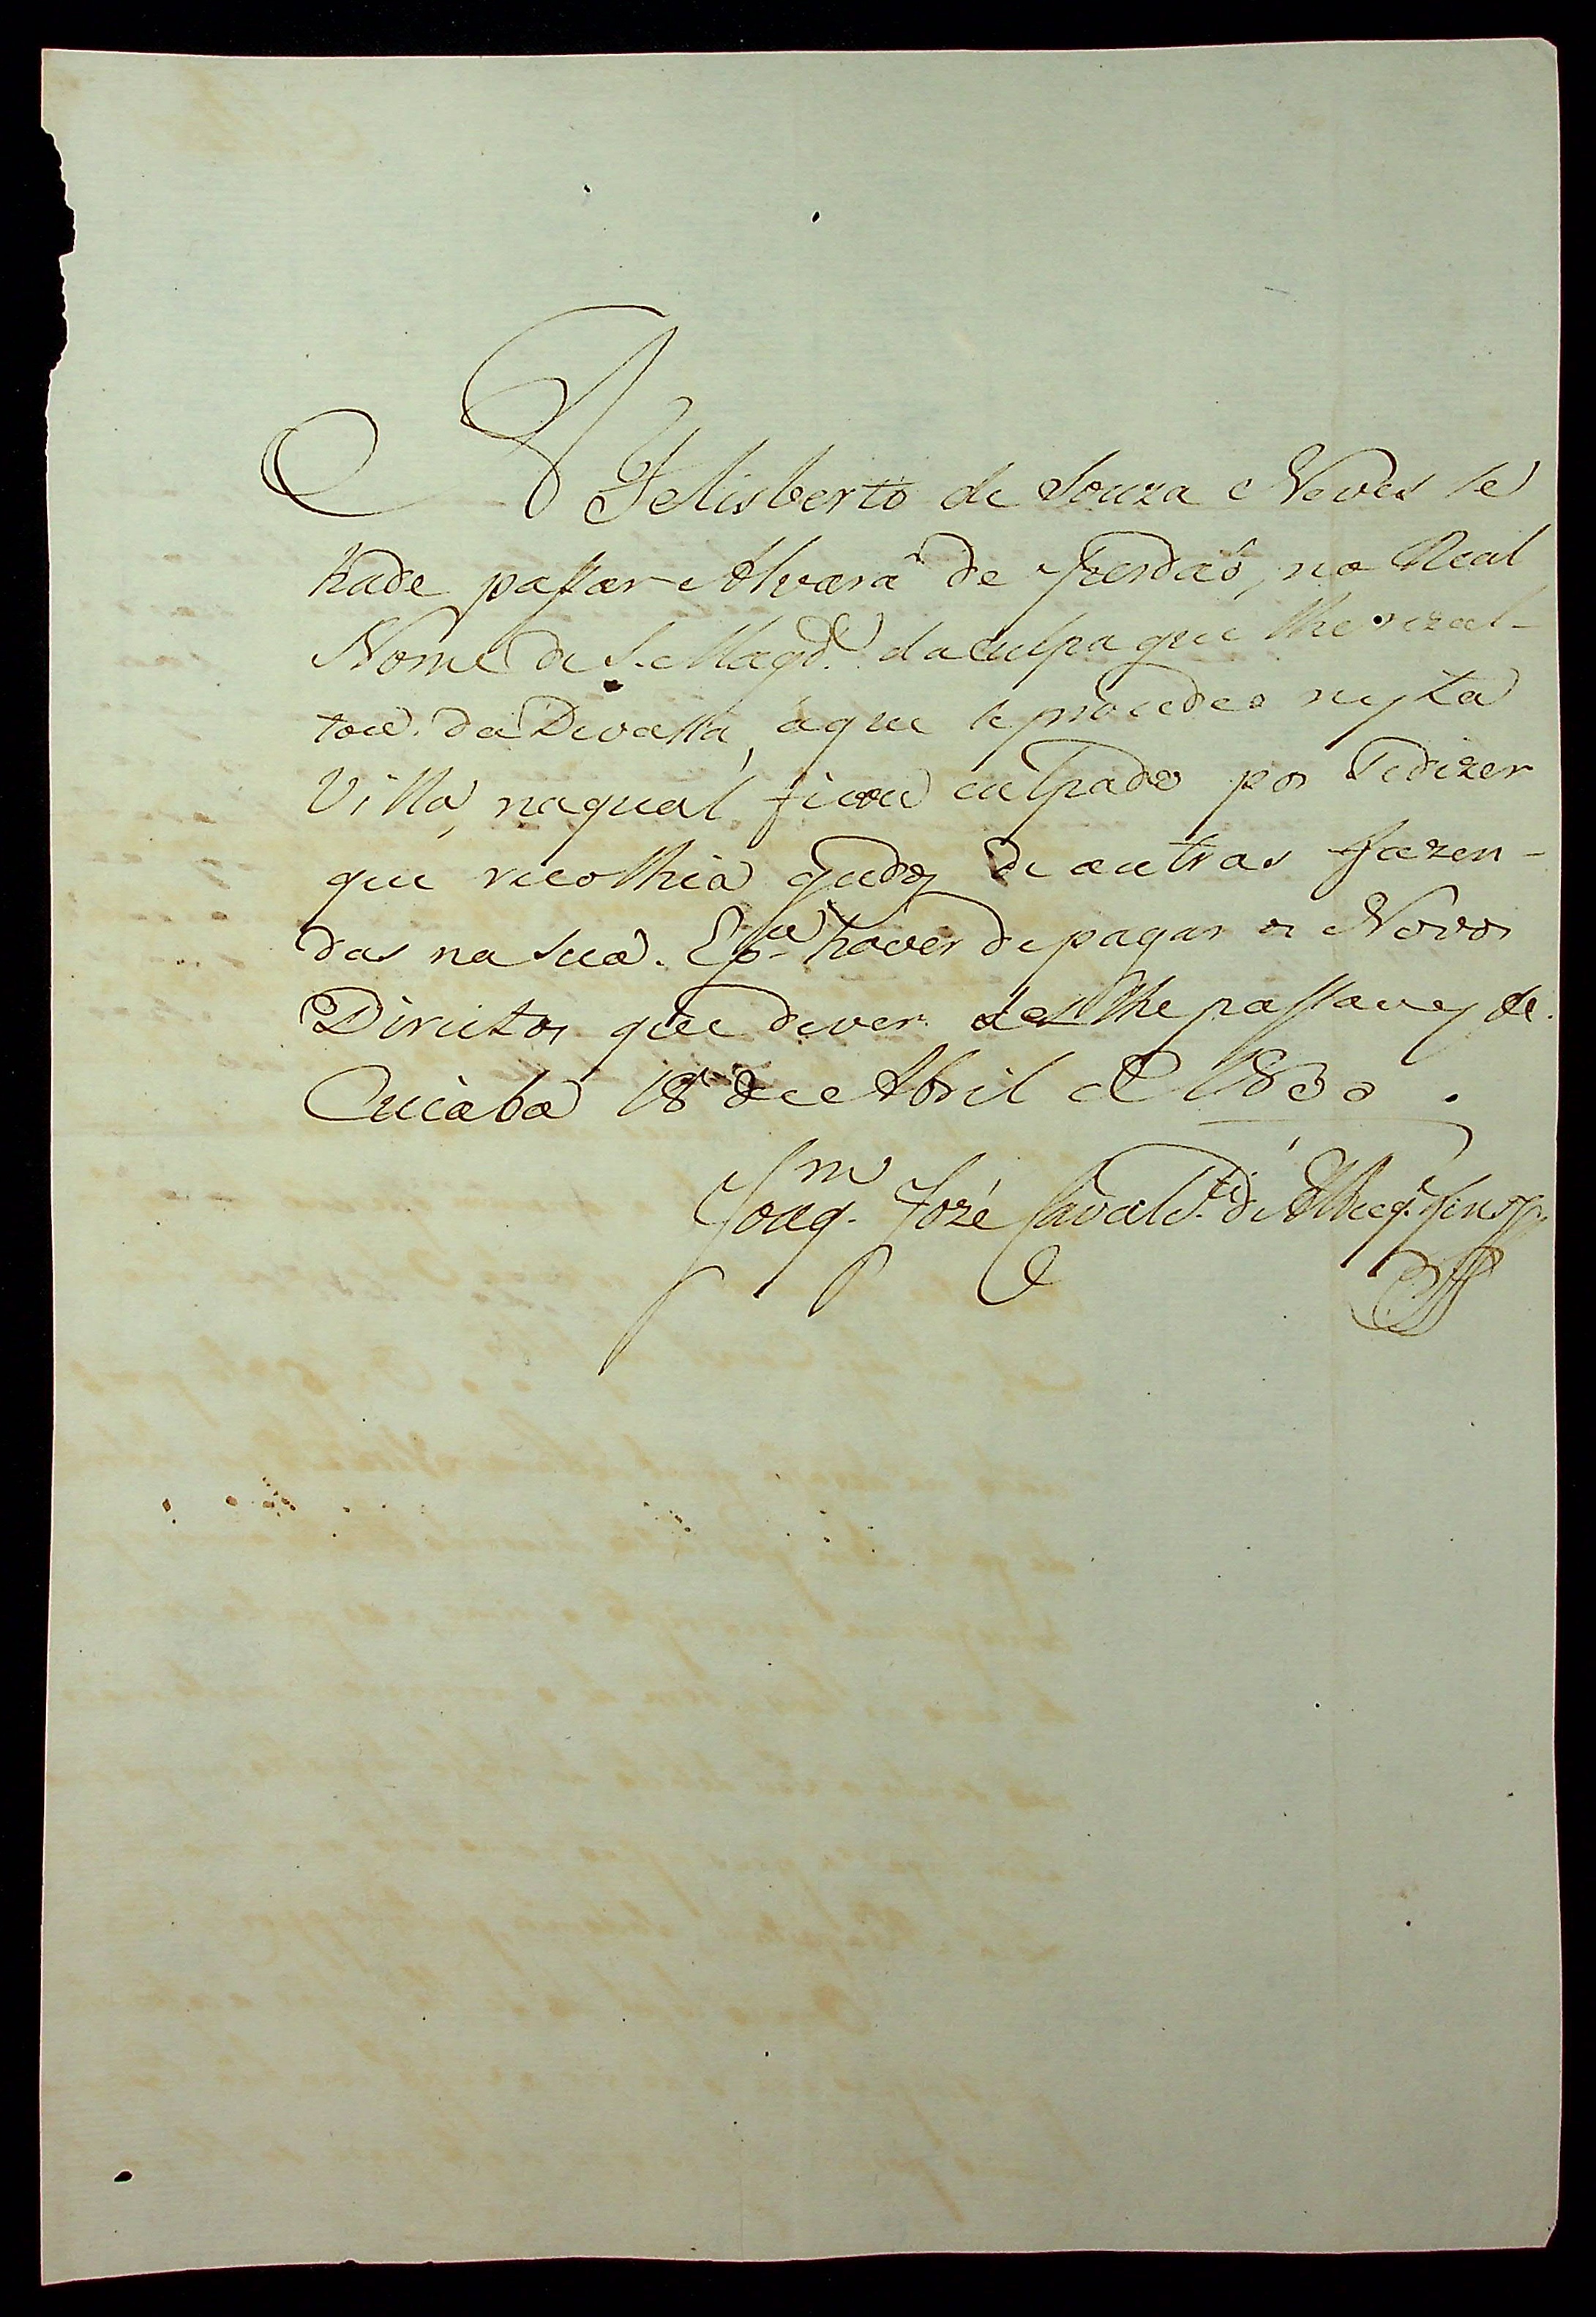 A Felisberto de Souza Neves se
hade passar Alvará de Perdaõ, no Real
Nome de S. Magd.e da culpa que lhe rezul-
tou da Devassa, aque se procedeo nesta
Villa, naqual ficou culpado por sedizer
que recolhia gados de outras fazen-
das na sua. E p.a haver de pagar os Novos
Direitos que dever se lhe passou este.
Cuiabá 18 de Abril de 1830.
Joaq.m José Cavalc.ti d'Albuq.e Lins